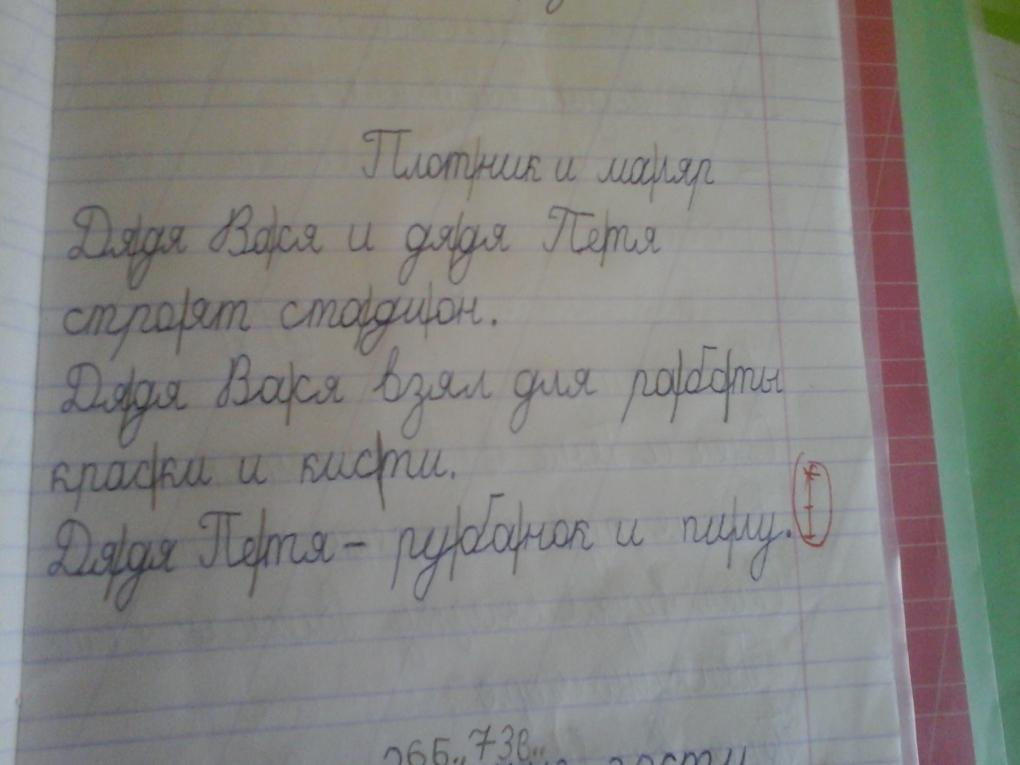 Плотник и маляр
Дядя Вася и дядя Петя
строят стадион.
Дядя Вася взял для работы
краски и кисти.
Дядя Петя – рубанок и пилу.